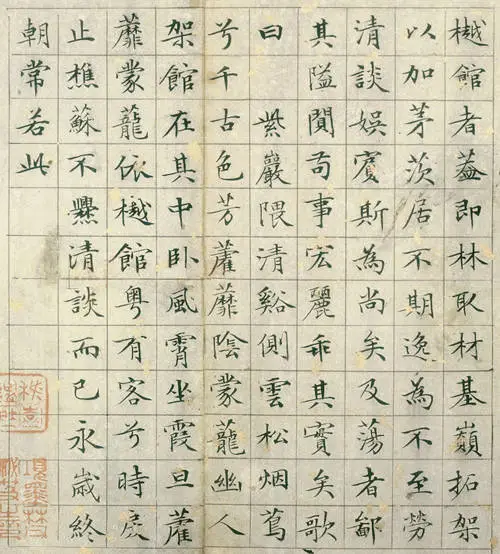 樾館者葢即林取材基巔拓架
以加茅茨居不期逸為不至勞
清談娛賓斯為尚矣及蕩者鄙
其隘闃苟事宏麗乖其實矣歌
曰 紫巖隈清谿側雲松烟蔦
兮千古色芳藿蘼陰蒙蘢幽人
架館在其中卧風霄坐霞旦藿
蘼蒙蘢依樾館粤有客兮時戾
止樵蘇不爨清談而已永歲終
朝常若此